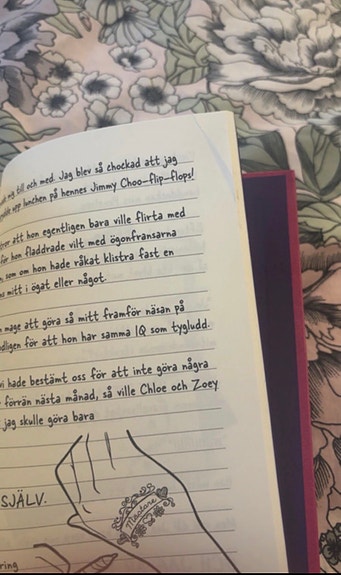 mig till och med. Jag blev så chockad att jag
upp lunchen på hennes Jimmy Choo-flip-flops!
att hon egentligen bara ville flirta med
för hon fladdrade vilt med ögonfransarna
som om hon hade råkat klistra fast en
mitt i ögat eller något.
mage att göra så mitt framför näsan på
för att hon har samma IQ som tygludd.
vi hade bestämt oss för att inte göra några
förrän nästa månad, så ville Chloe och Zoey
jag skulle göra bara
SJÄLV.
ring